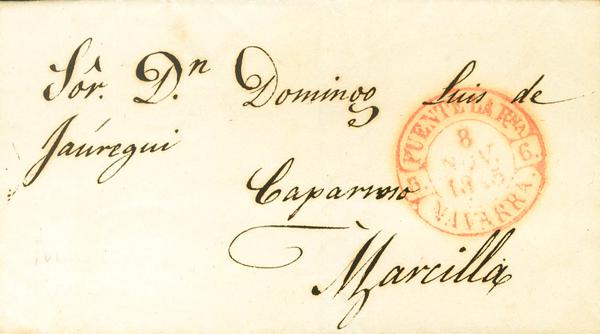 Sôr. D.n Domingo Luis de
Jaúregui
Caparroso
à Marcilla
PUENTE LA RNA
6 6
8
NOV.
1845
NAVARRA